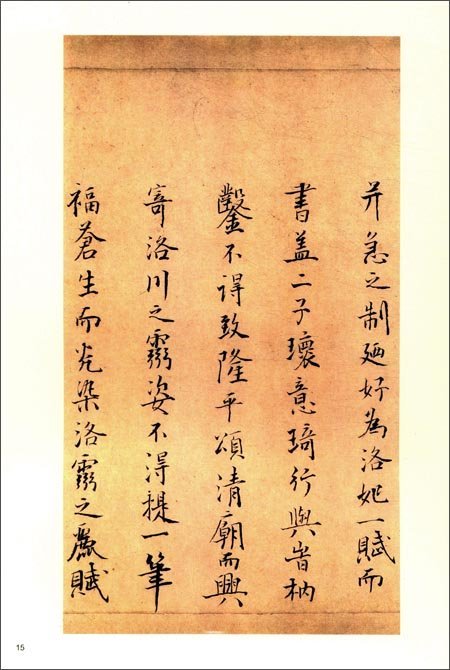 并急之制廼好為洛妃一賦而
書盖二子瓌意琦行與昔枘
鑿不得致隆平頌清廟而興
寄洛川之靈姿不得提一筆
福蒼生而光染洛靈之麗賦
15